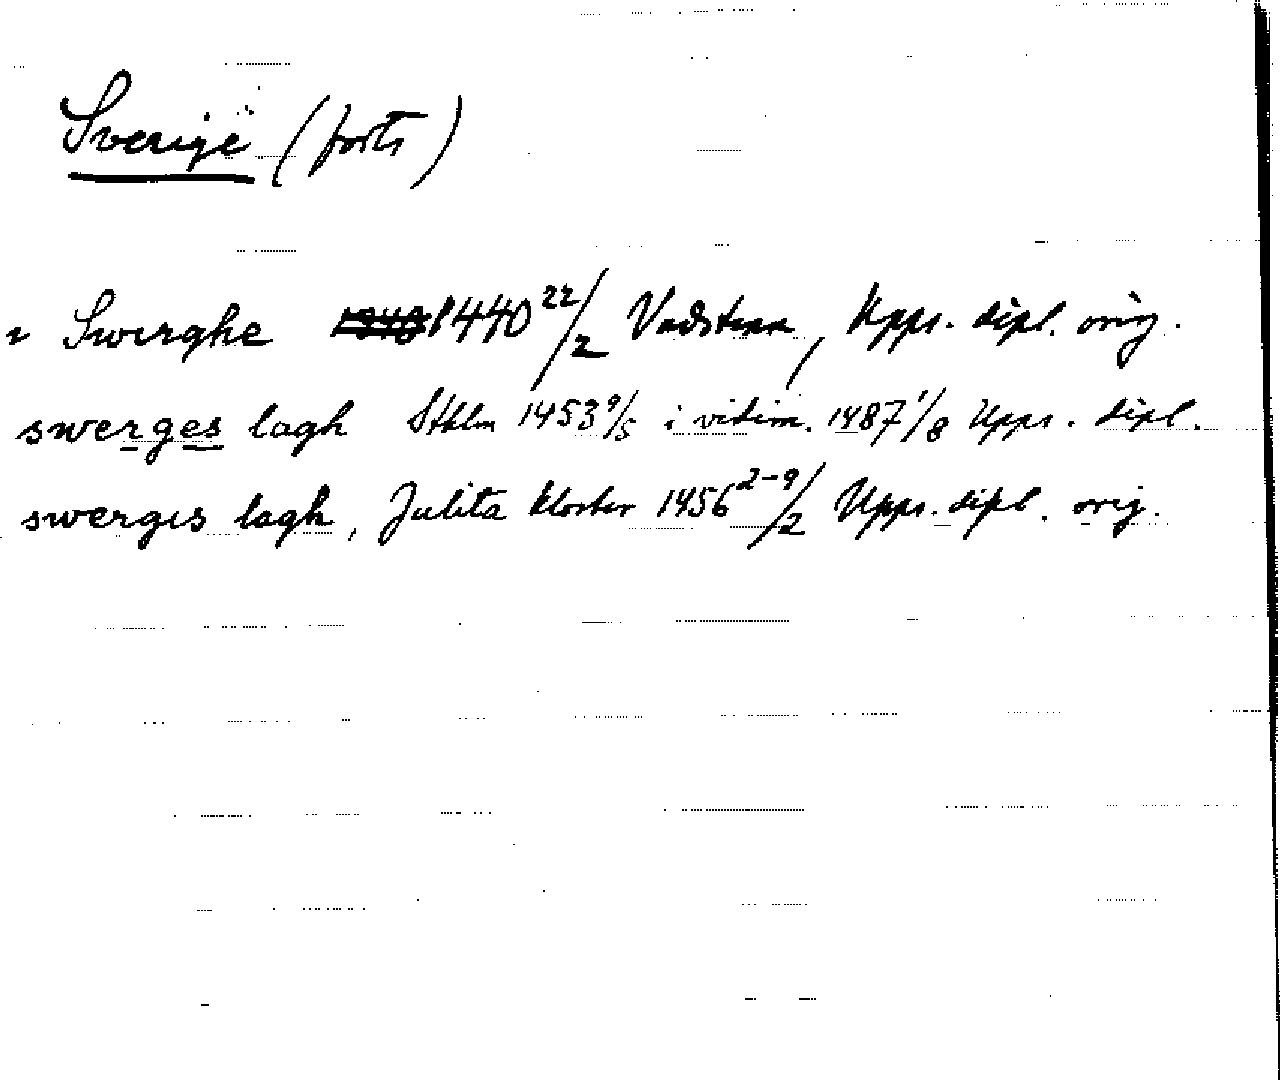 Sverige (forts)
i Swerghe 1440 22/2 Vadstena, Upps. dipl. orig.
swerges lagh Sthlm 1453 9/5 i vidim. 1487 1/8 Upps. dipl.
swergis lagh, Julita kloster 1456 2-9/2 Upps. dipl. orig.